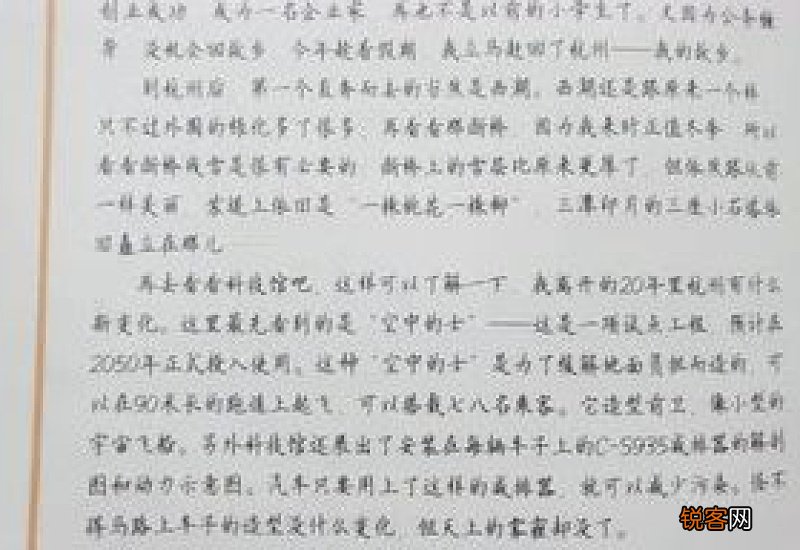 创业成功，成为一名企业家，再也不是以前的小学生了。又因为公务繁
身，没机会回故乡，今年趁着假期，我立马赶回了杭州——我的故乡。
到杭州后，第一个直奔而去的当然是西湖。西湖还是跟原来一个样，
只不过外围的绿化多了很多，再看看那断桥，因为我来时正值冬季，所以
看看断桥残雪是很有必要的，断桥上的雪居比原来更厚了，但依然跟从前
一样美丽，苏堤上依旧是“一株桃花一株柳”，三潭印月的三座小石塔依
旧矗立在那儿……
再去看看科技馆吧，这样可以了解一下，我离开的20年里杭州有什么
新变化。这里最先看到的是“空中的士”——这是一项试点工程，预计在
2050年正式投入使用。这种“空中的士”是为了缓解地面负担而造的，可
以在90米长的跑道上起飞，可以搭载七八名乘客。它造型前卫，像小型的
宇宙飞船。另外科技馆还展出了安装在每辆车子上的C-5935减排器的解剖
图和动力示意图。汽车只要用上了这样的减排器，就可以减少污染。怪不
得马路上车子的造型没什么变化，但天上的雾霾却没了。
锐客网